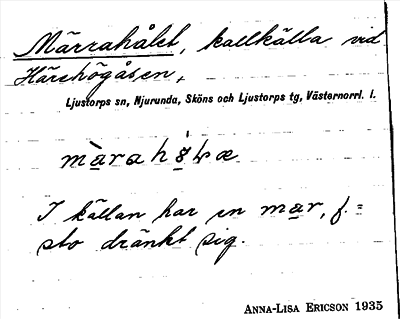 Märrahålet, kallkälla vid
Härehögåsen,
Ljustorps sn, Njurunda, Sköns och Ljustorps tg, Västernorrl. l.
I källan har en mar, f.=
sto dränkt sig.
ANNA-LISA ERICSON 1935